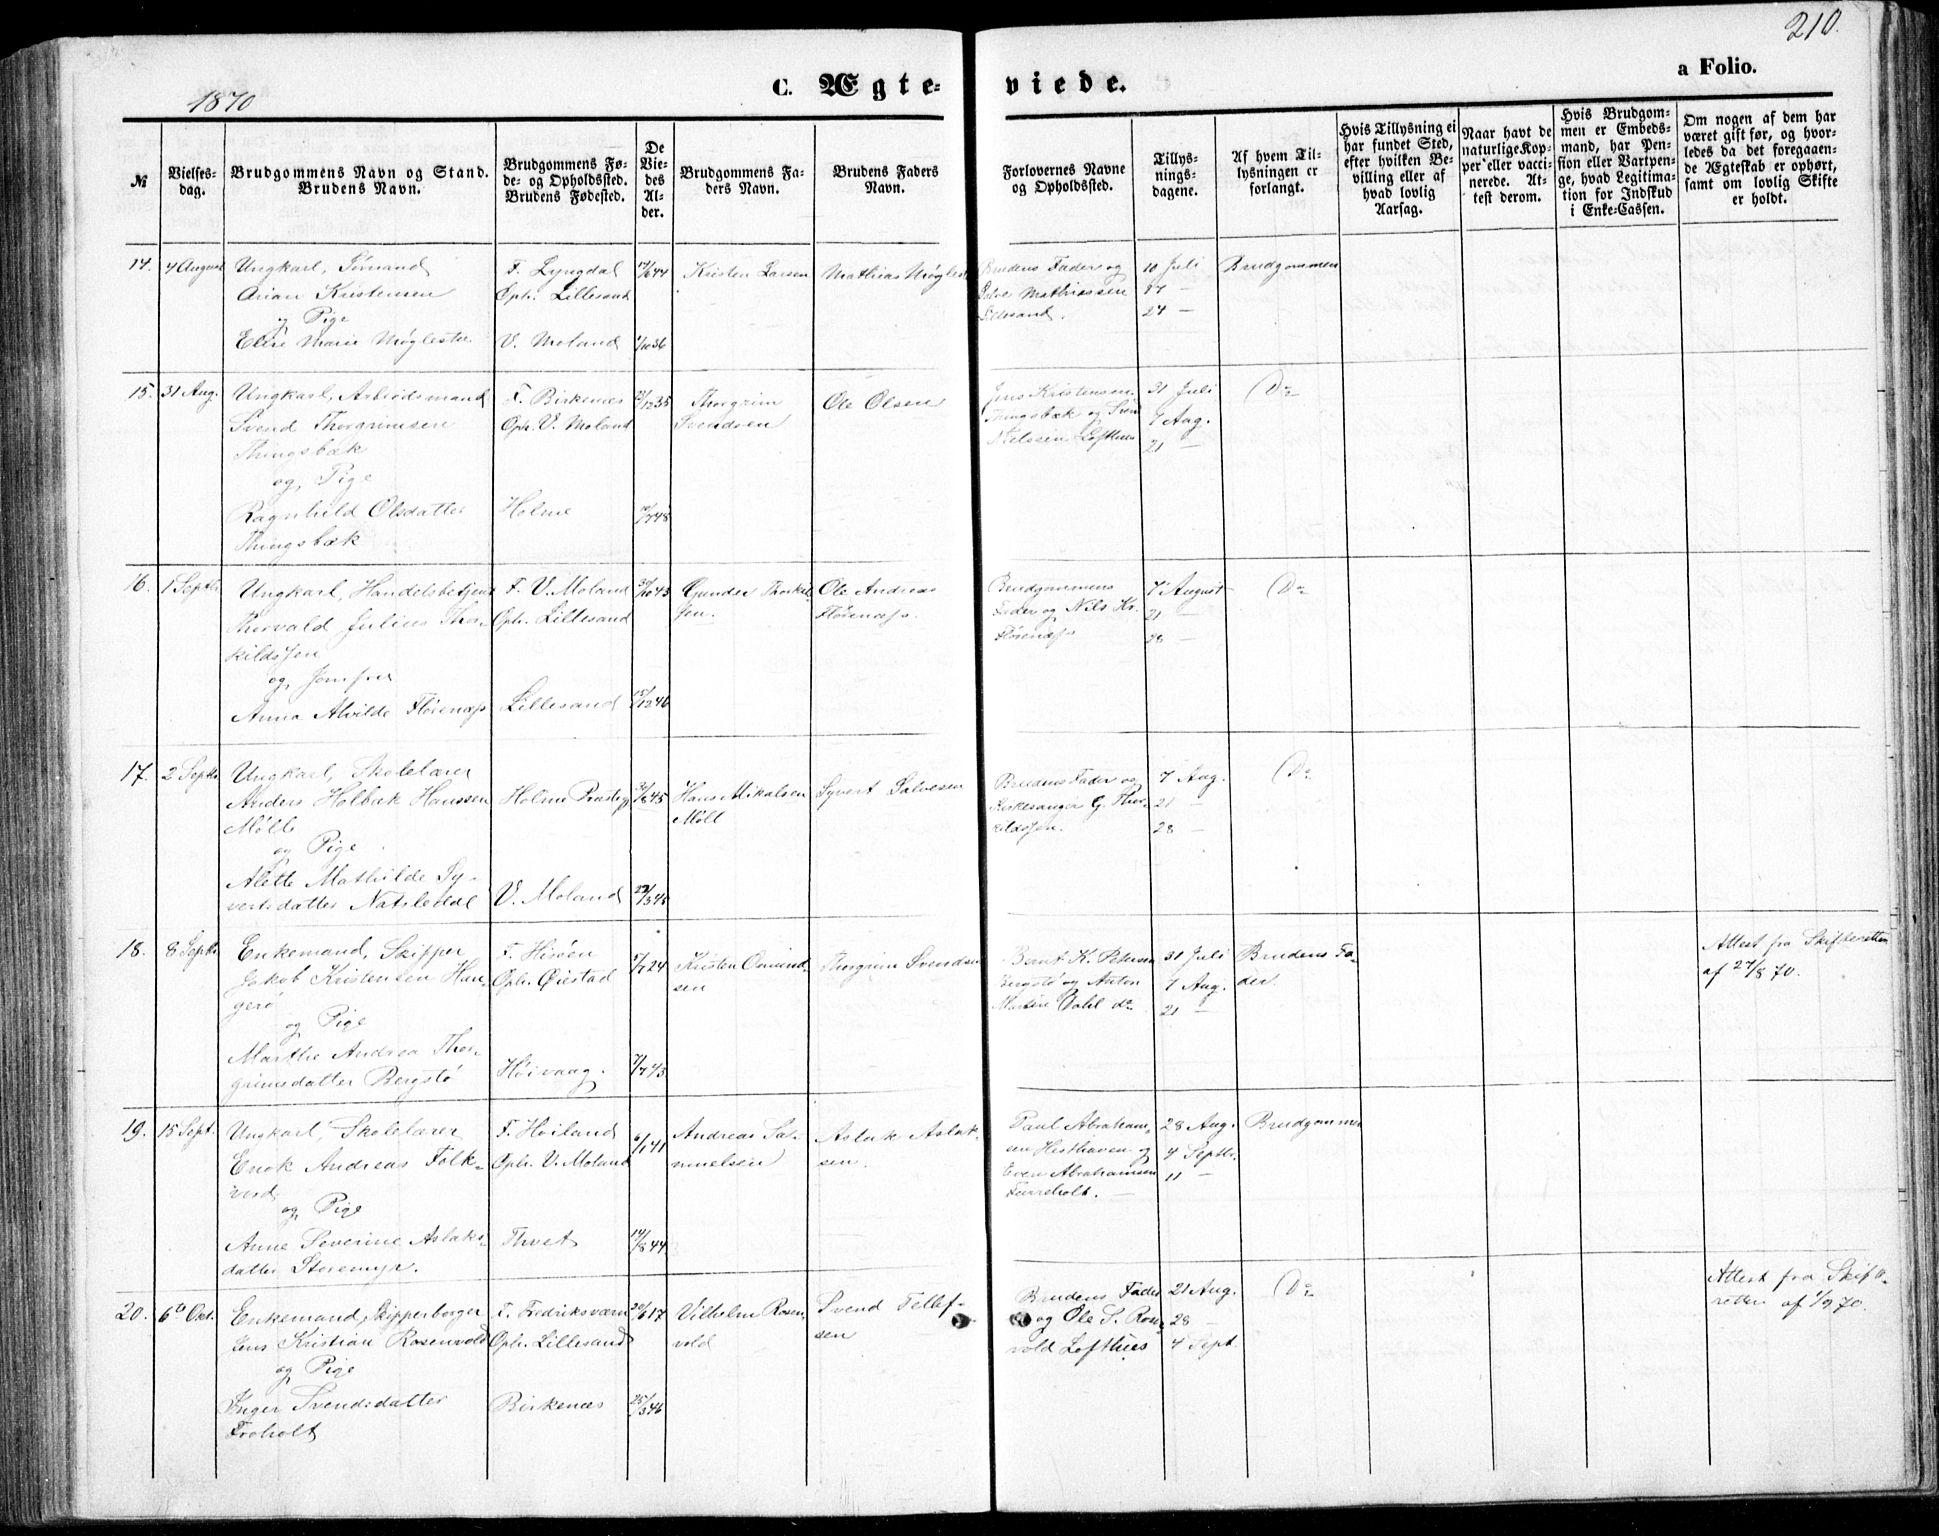 210.
1870
C. Ægte-
viede.
a Folio.
№
Vielses-
dag.
Brudgommens Navn og Stand.
Brudens Navn.
Brudgommens Fø-
de- og Opholdssted.
Brudens Fødested.
De
Vie-
des
Al-
der.
Brudgommens Fa-
ders Navn.
Brudens Faders
Navn.
Forlovernes Navne
og Opholdssted.
Tillys-
nings-
dagene.
Af hvem Til-
lysningen er
forlangt.
Hvis Tillysning ei
har fundet Sted,
efter hvilken Be-
villing eller af
hvad lovlig
Aarsag.
Naar havt de
naturlige Kop-
per eller vacci-
nerede. At-
test derom.
Hvis Brudgom-
men er Embeds-
mand, har Pen-
sion eller Vartpen-
ge, hvad Legitima-
tion for Indskud
i Enke-Cassen.
Om nogen af dem har
været gift før, og hvor-
ledes da det foregaaen-
de Ægteskab er ophørt,
samt om lovlig Skifte
er holdt.
14.
4 August
Ungkarl, Sømand
Arian Kristensen
og Pige
Elise Marie Møglestue
F. Lyngdal
Oph. Lillesand
V. Moland
17/6 44
1/10 36
Kristen Larsen
Mathias Møglest
Brudens Fader og
Salve Mathiassen
Lillesand.
10 Juli
17 —
24 —
Brudgommen
15.
31 Aug.
Ungkarl, Arbeidsmand
Svend Thorgrimsen
Thingsbæk
og Pige
Ragnhild Olsdatter
Thingsbæk
F. Birkenæs
Oph. V. Moland
Holme
/12 35
/7 48
Thorgrim
Svendsen
Ole Olsen
Jens Kristensen
Tingsbæk og
Nielssen Lofthus
31 Juli
7 Aug.
21 —
Do
16.
1 Septbr
Ungkarl, Handelsbetjent
Thorvald Julius Thor-
kildssen
og Jomfru
Anna Alvilde Flørenæs
F. V. Moland
Oph. Lillesand
Lillesand
30/10 43
15/12 46
Gunder Thorkil-
sen.
Ole Andreas
Flørenæs.
Brudgommens
Fader og Nils Kr.
Flørenæs
7 August
21 —
28 —
Do
17.
2 Septbr
Ungkarl, Skolelærer
Anders Holbæk Hanssen
Møll
og Pige
Alette Mathilde Sy-
vertsdatter Natveddal
Holme Præstegj
V. Moland
31/8 45
22/3 45
Hans Mikalsen
Møll
Syvert Salvesen
Brudens Fader og
Kirkesanger G. Thor-
kildssen.
7 Aug.
21 —
28 —
Do
18.
8 Septbr
Enkemand, Skipper
Jakob Kristensen Han-
gerø
og Pige
Marthe Andrea Thor-
grimsdatter Bergstø
F. Hisøen
Oph. Øiestad
Høivaag.
5/7 24
7/7 43
Kristen Omund-
sen
Thorgrim Svendsen
Bernt K. Petersen
Bergstø og Anton
Martin Dahl do
31 Juli
7 Aug.
21 —
Brudens Fa-
der.
Attest fra Skifteretten
af 27/8 70.
19.
15 Sept.
Ungkarl, Skolelærer
Enok Andreas Folk-
vord
og Pige
Anne Severine Aslaks-
datter Storemyr.
F. Høiland
Oph. V. Moland
Thvet
6/1 41
14/8 44
Andreas Sa-
muelsen
Aslak Aslak-
sen.
Paul Abraham-
sen Hesthaven og
Even Abrahamsen
Furreholt. —
28 Aug.
4 Septbr.
11 —
Brudgommen
20.
6te Okt.
Enkemand, Skipperborger
Jens Kristian Rosenvold
og Pige
Inger Svendsdatter
Froholt
F. Fredriksværn
Oph. Lillesand
Birkenæs
20/6 17
25/3 46
Vilhelm Rosen-
vold
Svend Tellef-
sen
Brudens Fader
og Ole S. Rosen-
vold Lofthus
21 Aug.
28 —
4 Sept.
Do
Attest fra Skifte-
retten af 1/9 70.